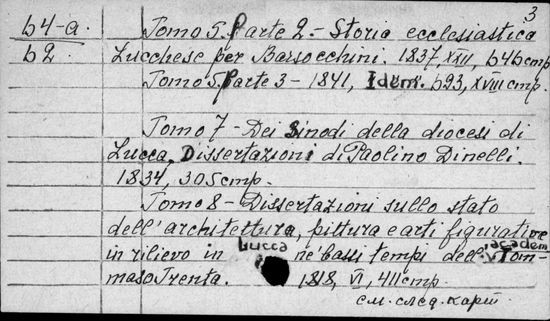 3
64-a.
62
Tomo 5. Parte 2. - Storia ecclesiastica
Lucchese per Barsocchini. 1837, XXII, 646 стр
Tomo 5. Parte 3 - 1841, Idem. 693, XVIII стр.
Tomo 7 - Dei Sinodi della diocesi di
Lucca, Dissertazioni di Paolino Dinelli.
1834, 305 стр.
Tomo 8 - Dissertazioni sullo stato
dell'architettura, pittura e arti figurative
in rilievo in Lucca ne' bassi tempi dell' academ. Tom-
maso Trenta. 1818, VI, 411 стр.
см. след. карт